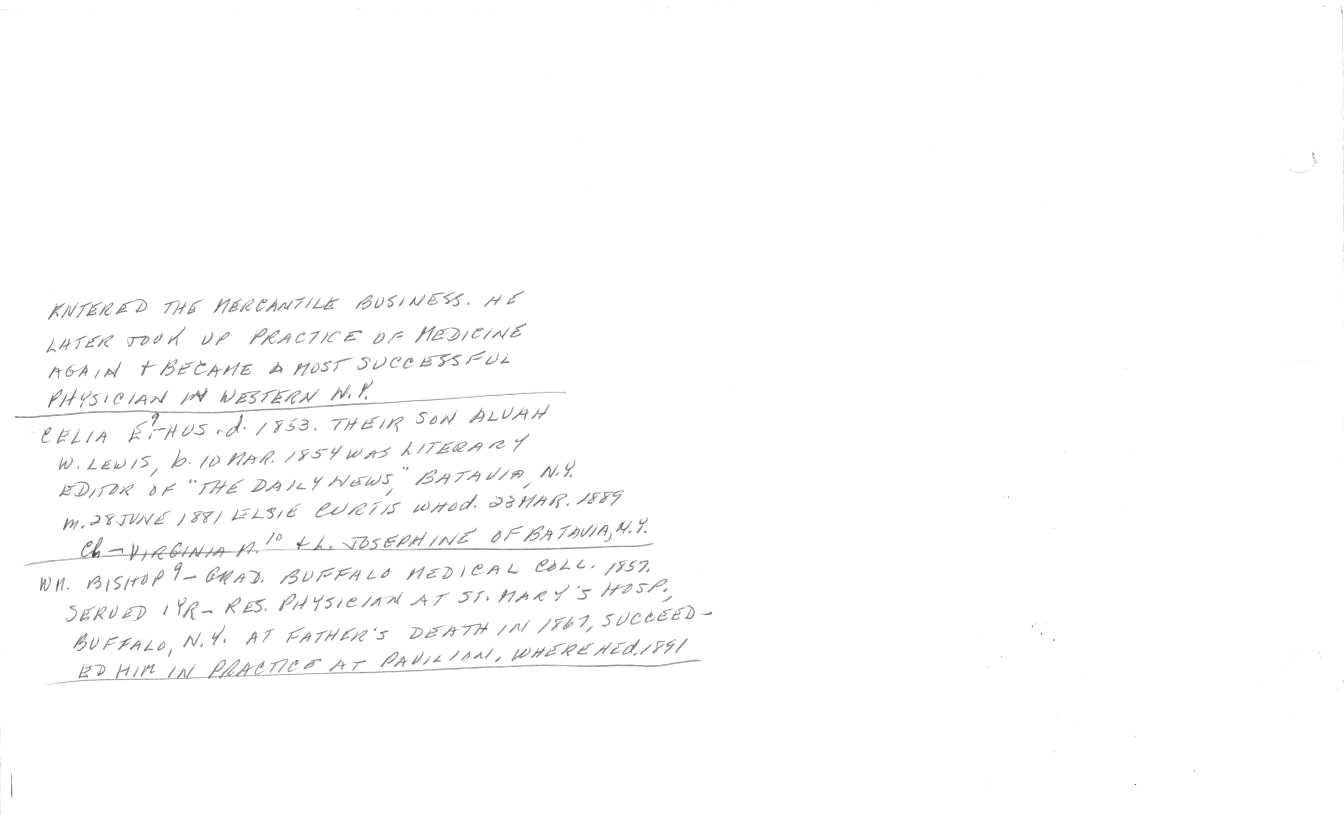 ENTERED THE MERCANTILE BUSINESS. HE
LATER TOOK UP PRACTICE OF MEDICINE
AGAIN + BECAME A MOST SUCCESSFUL
PHYSICIAN IN WESTERN N.Y.
CELIA E.⁹-HUS. d. 1853. THEIR SON ALVAH
W. LEWIS, b. 10 MAR. 1854 WAS LITERARY
EDITOR OF "THE DAILY NEWS," BATAVIA, N.Y.
m. 28 JUNE 1881 ELSIE CURTIS WHO d. 23 MAR. 1889
Ch - VIRGINIA A.¹⁰ + L. JOSEPHINE OF BATAVIA, N.Y.
WM. BISHOP⁹ - GRAD. BUFFALO MEDICAL COLL. 1857.
SERVED 1 YR - RES. PHYSICIAN AT ST. MARY'S HOSP.,
BUFFALO, N.Y. AT FATHER'S DEATH IN 1867, SUCCEED-
ED HIM IN PRACTICE AT PAVILION, WHERE HE d. 1891